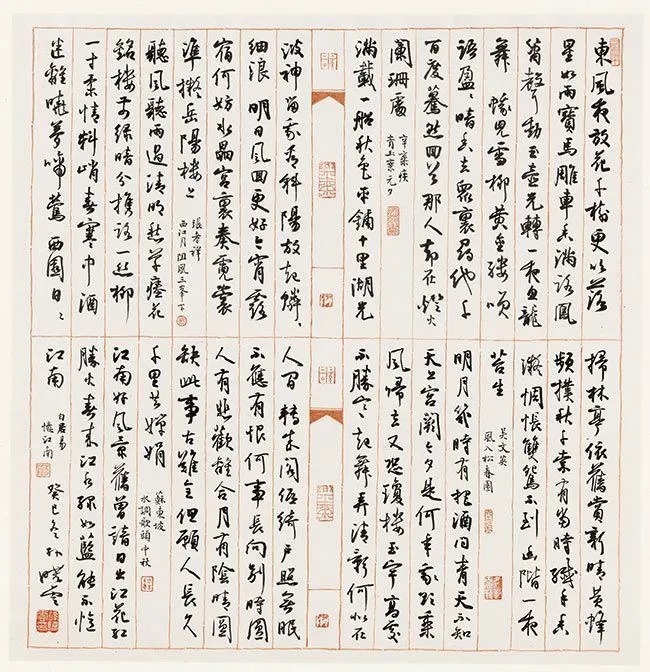 東風夜放花千樹更吹落
星如雨寶馬雕車香滿路鳳
簫聲動玉壺光轉一夜魚龍
舞 蛾兒雪柳黃金縷笑
語盈〻暗香去眾裏尋他千
百度驀然回首那人卻在燈火
闌珊處
辛棄疾
青玉案元夕
滿載一船秋色平鋪十里湖光
波神留我看斜陽放起鱗〻
細浪 明日風回更好今宵露
宿何妨水晶宮裏奏霓裳
準擬岳陽樓上
張孝祥
西江月阻風三峯下
聽風聽雨過清明愁草瘞花
銘樓前綠暗分攜路一絲柳
一寸柔情料峭春寒中酒
迷離曉夢啼鶯 西園日〻
掃林亭依舊賞新晴黃蜂
頻撲秋千索有當時纖手香
凝惆悵雙鴛不到幽階一夜
苔生
吳文英
風入松春園
明月幾時有把酒問青天不知
天上宮闕今夕是何年我欲乘
風歸去又恐瓊樓玉宇高處
不勝寒起舞弄清影何似在
人間 轉朱閣低綺戶照無眠
不應有恨何事長向別時圓
人有悲歡離合月有陰晴圓
缺此事古難全但願人長久
千里共嬋娟
蘇東坡
水調歌頭中秋
江南好風景舊曾諳日出江花紅
勝火春來江水綠如藍能不憶
江南
白居易
憶江南
癸巳冬 孙曉雲